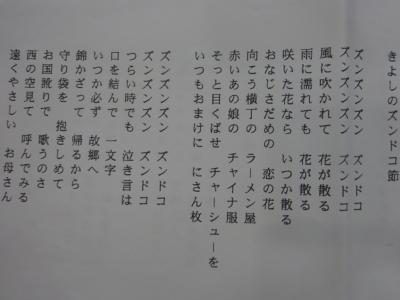 きよしのズンドコ節
ズンズンズン　ズンドコ
ズンズンズン　ズンドコ
風に吹かれて　花が散る
雨に濡れても　花が散る
咲いた花なら　いつか散る
おなじさだめの　恋の花
向こう横丁の　ラーメン屋
赤いあの娘の　チャイナ服
そっと目くばせ　チャーシューを
いつもおまけに　にさん枚
ズンズンズン　ズンドコ
ズンズンズン　ズンドコ
つらい時でも　泣き言は
口を結んで　一文字
いつか必ず　故郷へ
錦かざって　帰るから
守り袋を　抱きしめて
お国訛りで　歌うのさ
西の空見て　呼んでみる
遠くやさしい　お母さん